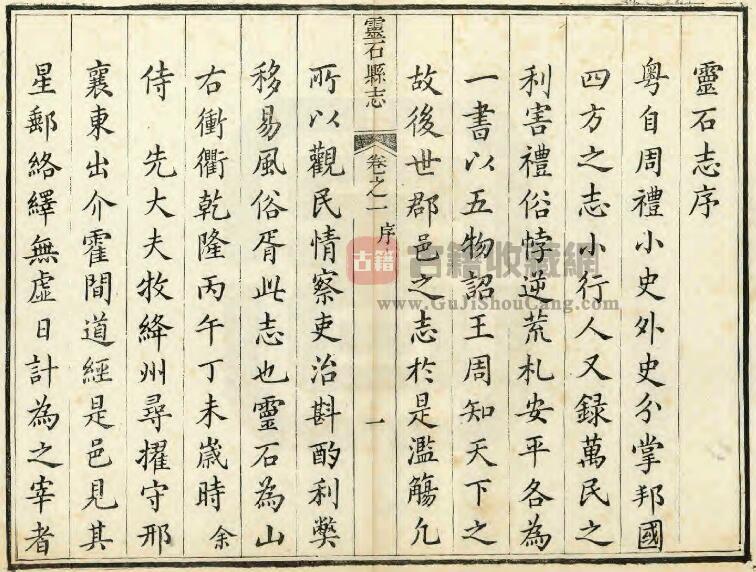 靈石志序
粵自周禮小史外史分掌邦國
四方之志小行人又録萬民之
利害禮俗悖逆荒札安平各為
一書以五物詔王周知天下之
故後世郡邑之志於是濫觴凢
靈石縣志
卷之一 序
一
所以觀民情察吏治斟酌利獘
移易風俗胥此志也靈石為山
右衝衢乾隆丙午丁未歲時余
侍 先大夫牧絳州尋擢守邢
襄東出介霍間道經是邑見其
星郵絡繹無虛日計為之宰者
古籍
古籍收藏網
www.GuJiShouCang.com